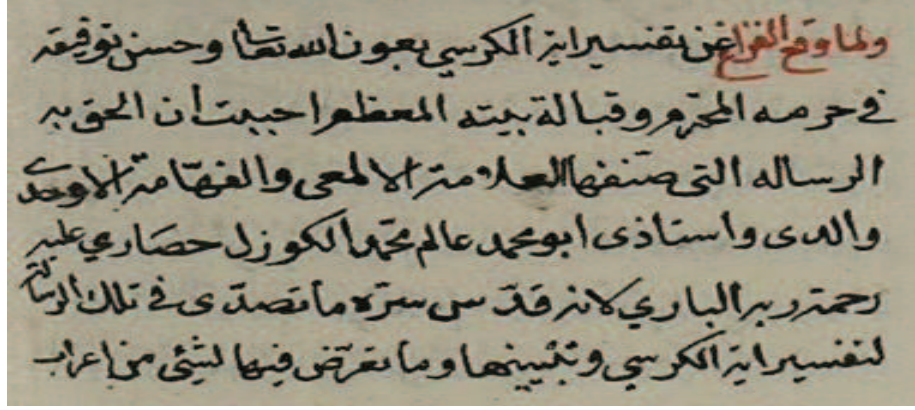 ولما وقع الفراغ عن تفسير اية الكرسي بعون الله تعا وحسن توفيقه
في حرمه المحترم وقبالة بيته المعظم احببت أن الحق به
الرساله التى صنفها العلامة الالمعى والفهّامة الاوحدى
والدى واستاذى ابو محمد عالم محمد الكوزل حصاري عليه
رحمة ربه البارى لانه قدّس سرّه ما تصدّى في تلك الرسالة
لتفسير اية الكرسي وتبيينها وما تعرّض فيها لشئى من اعراب